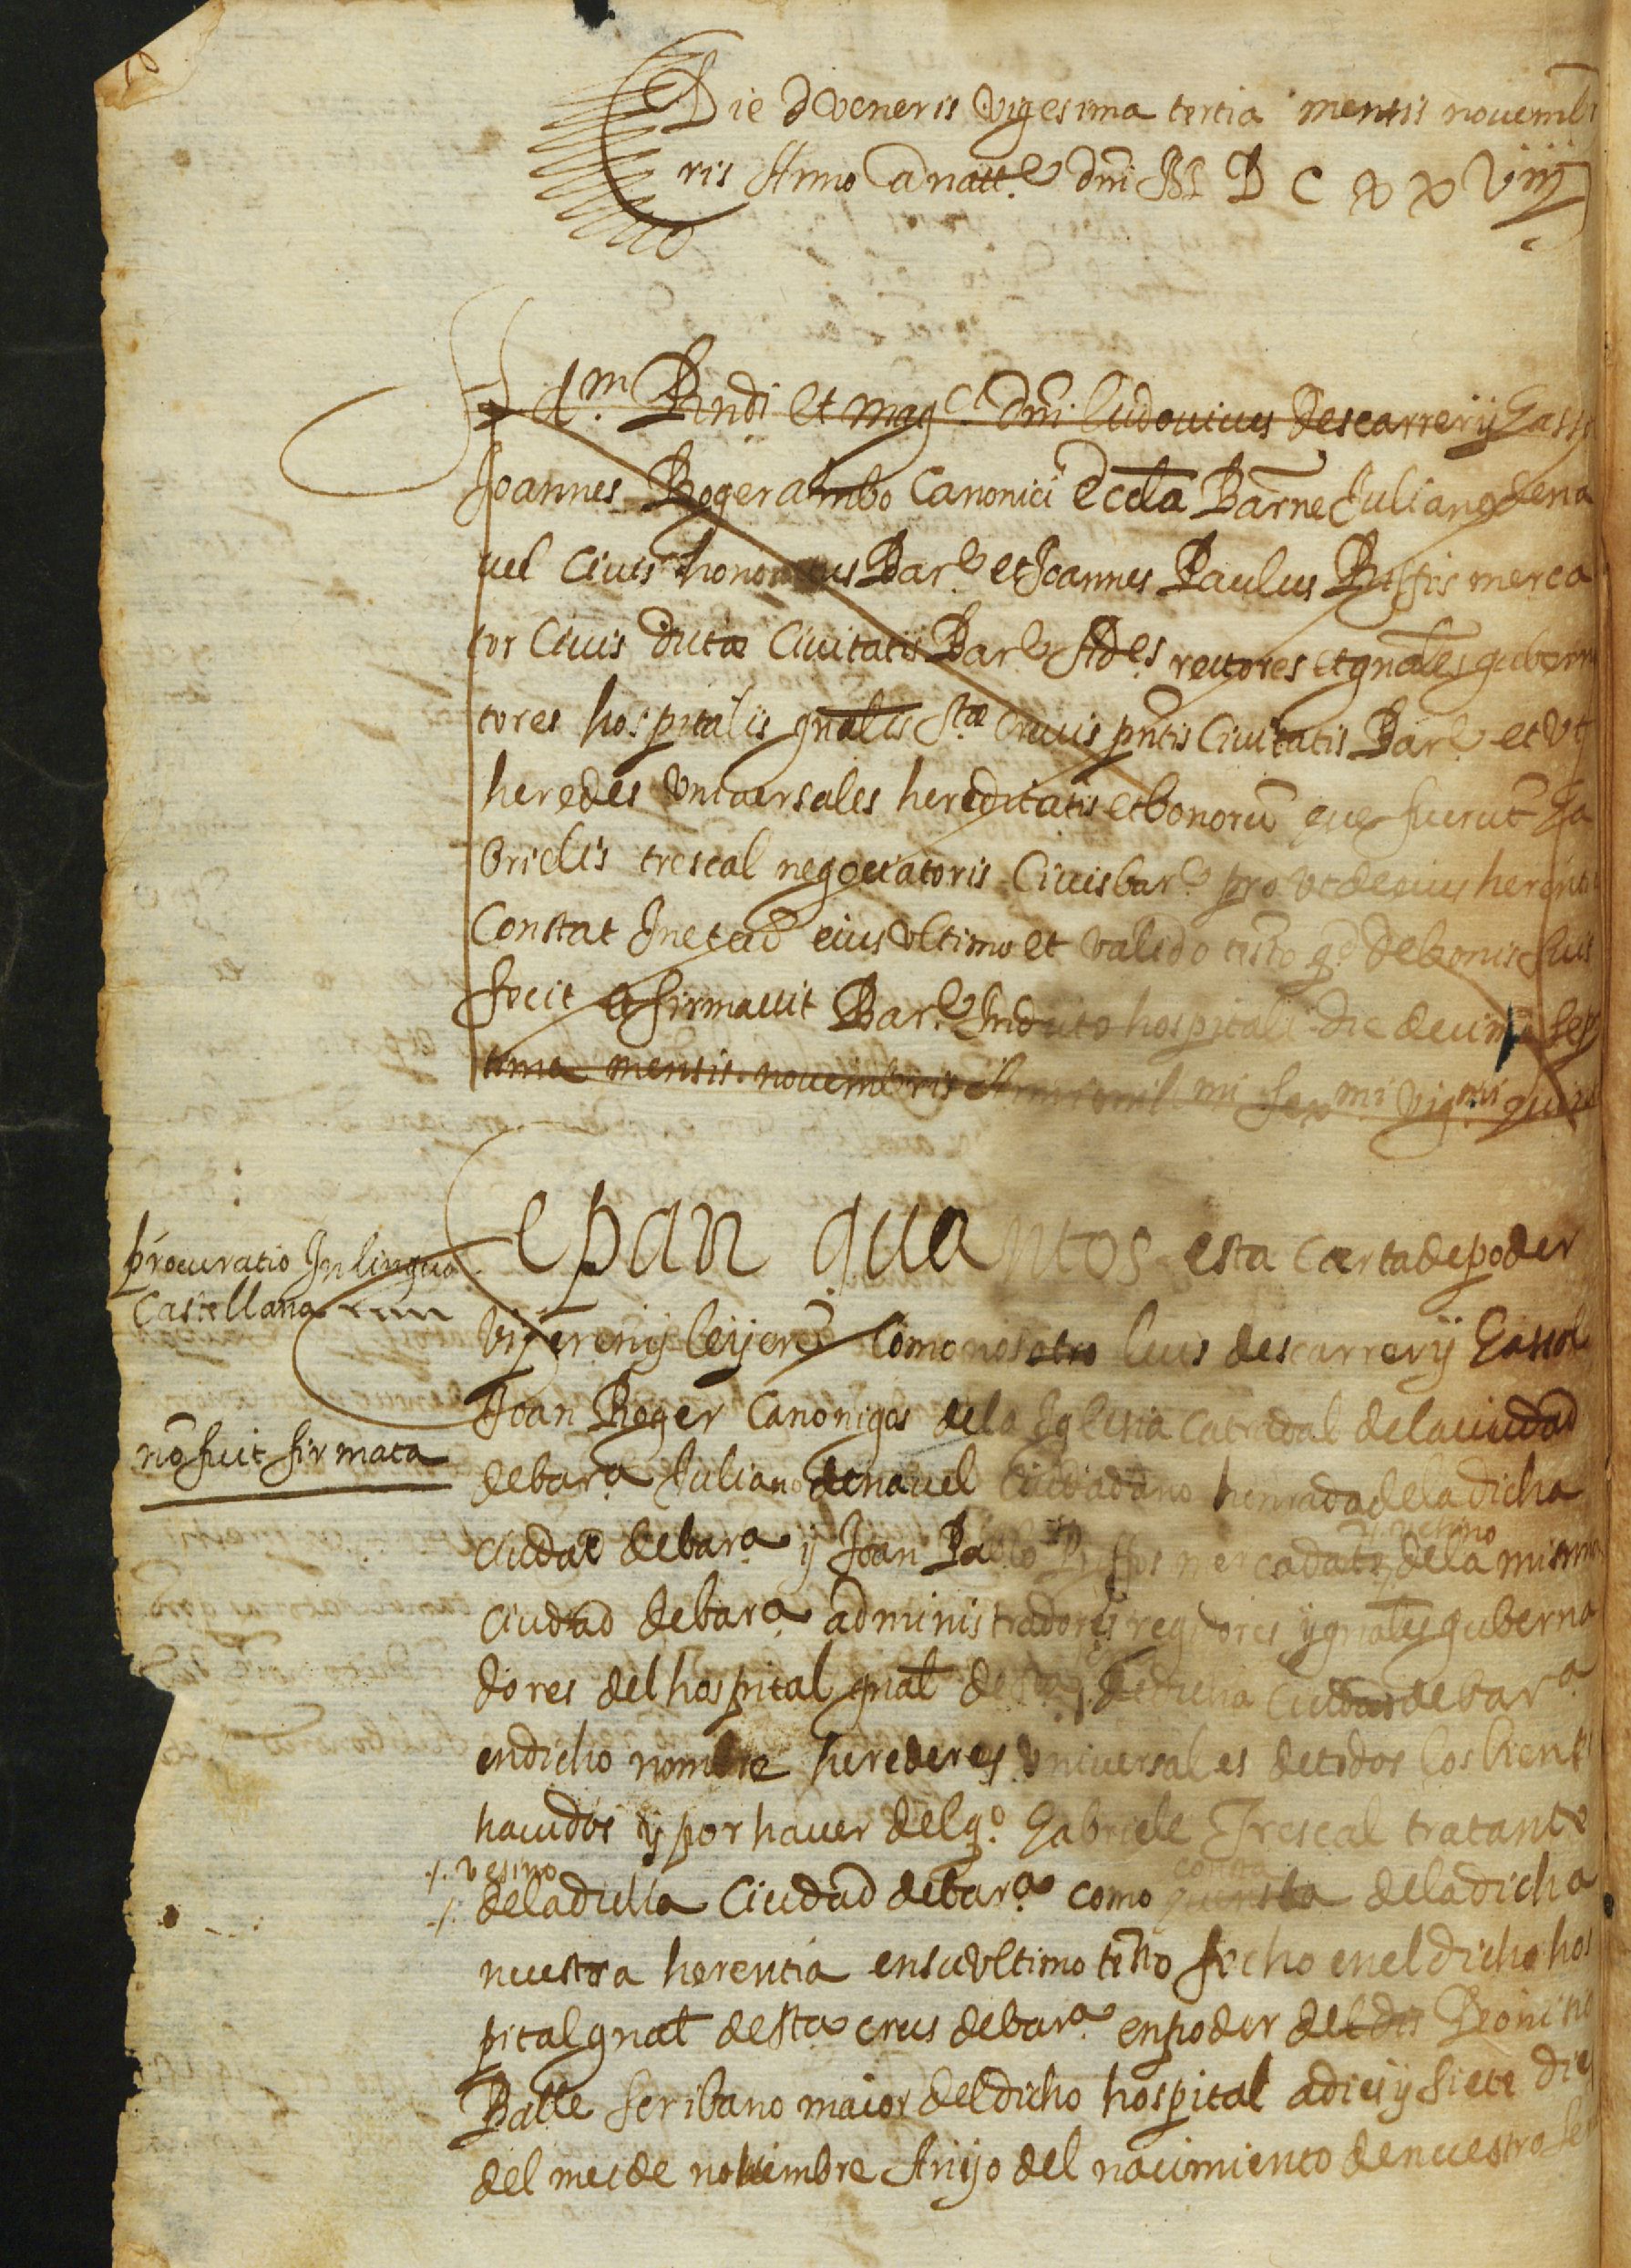 Die Veneris vigesima tertia mensis nouemb
ris Anno a natt.e dni M D C x x Viiij
d.m Rndi et mag.ci dni ludouicus descarreryj Gassol
Joannes Roger ambo Canonici Eccla Barne Julianus de na
uel Ciuis honoratus Bar.e et Joannes Paulus Riffos merca
tor Ciuis dictæ Ciuitatis Bar.e Ad.es rectores et gnales guberna
tores hospitalis gnalis S.tæ Crucis pntis Ciuitatis Bar.e et Vt
heredes Vniuersales hereditatis et bonorū que fuerūt Ga
brielis trescal negociatoris Ciuis bar.e pro Vt de eius herentia
Constat eius Vltimo et valido testo q.d de bonis suis
fecit et firmauit Bar.e In dicto hospitali die decima sep
tima mensis nouembris Anni mil.mi sex.mi vig.mi
procuratio In lingua
Castellana
epan quantos esta carta de poder
Vijeren ij leijeren Como nosotro luis descarrerij Gassol
Joan Roger Canonigos de la Iglesia catradal de la ciudad
nō fuit firmata
de bar.a Juliano de nauel Ciudadano honrado de la dicha
vehino
ciudad de bar.a ij Joan Pablo Riffos mercadate de la misma
ciudad de bar.a administradores regidores ij gnales guberna
dores del hospital gnal de sta de dicha Ciudad de bar.a
en dicho nombre herederes Vniuersales de todos los bienes
hauidos ij por hauer del q.o Gabriele Trescal tratante
./. vesino
consta
./. de la dicha Ciudad de bar.a como de la dicha
nuestra herentia en su Vltimo testo fecho en el dicho hos
pital gnal de sta crus de bar.a en poder del Dionisio
Batle scribano maior del dicho hospital a dies ij siete dies
del mes de nohiembre Anijo del nacimiento de nuestro se